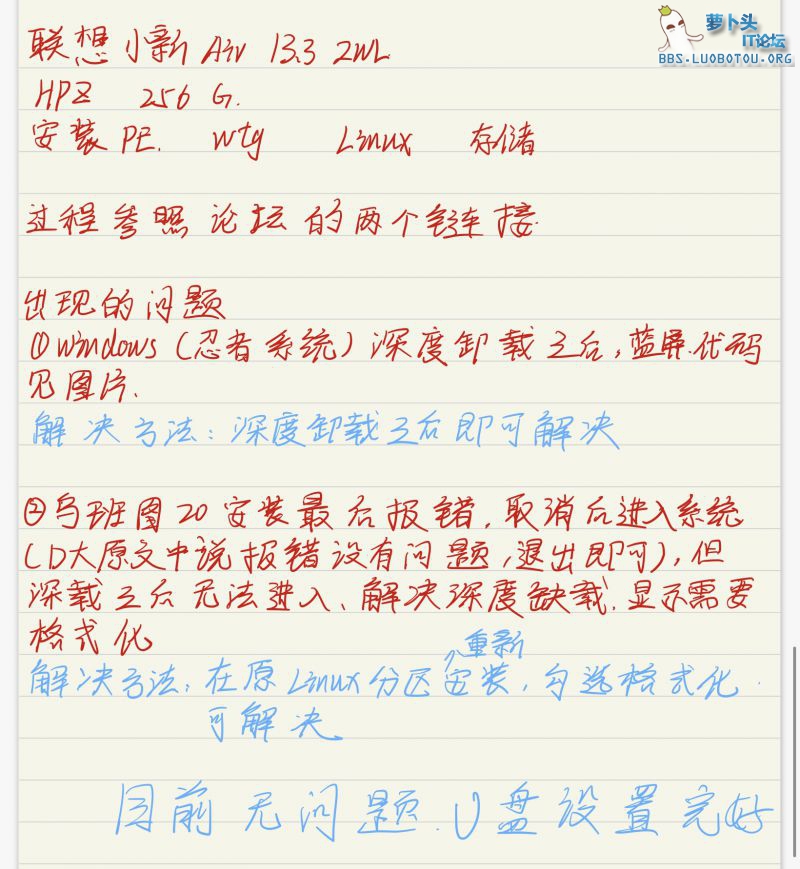 萝卜头
IT论坛
BBS.LUOBOTOU.ORG
联想小新 Air 13.3 2WL
HPZ 256 G.
安装 PE. wtg Linux 存储
过程参照 论坛的两个链接.
出现的问题
①windows (忍者系统) 深度卸载之后,蓝屏.代码
见图片.
解决方法:深度卸载之后即可解决
②乌班图20安装最后报错,取消后进入系统
(D大原文中说报错没有问题,退出即可),但
深载之后无法进入、解决深度缺载.显示需要
格式化
解决方法:在原Linux分区重新安装,勾选格式化.
可解决
目前无问题.U盘设置完好